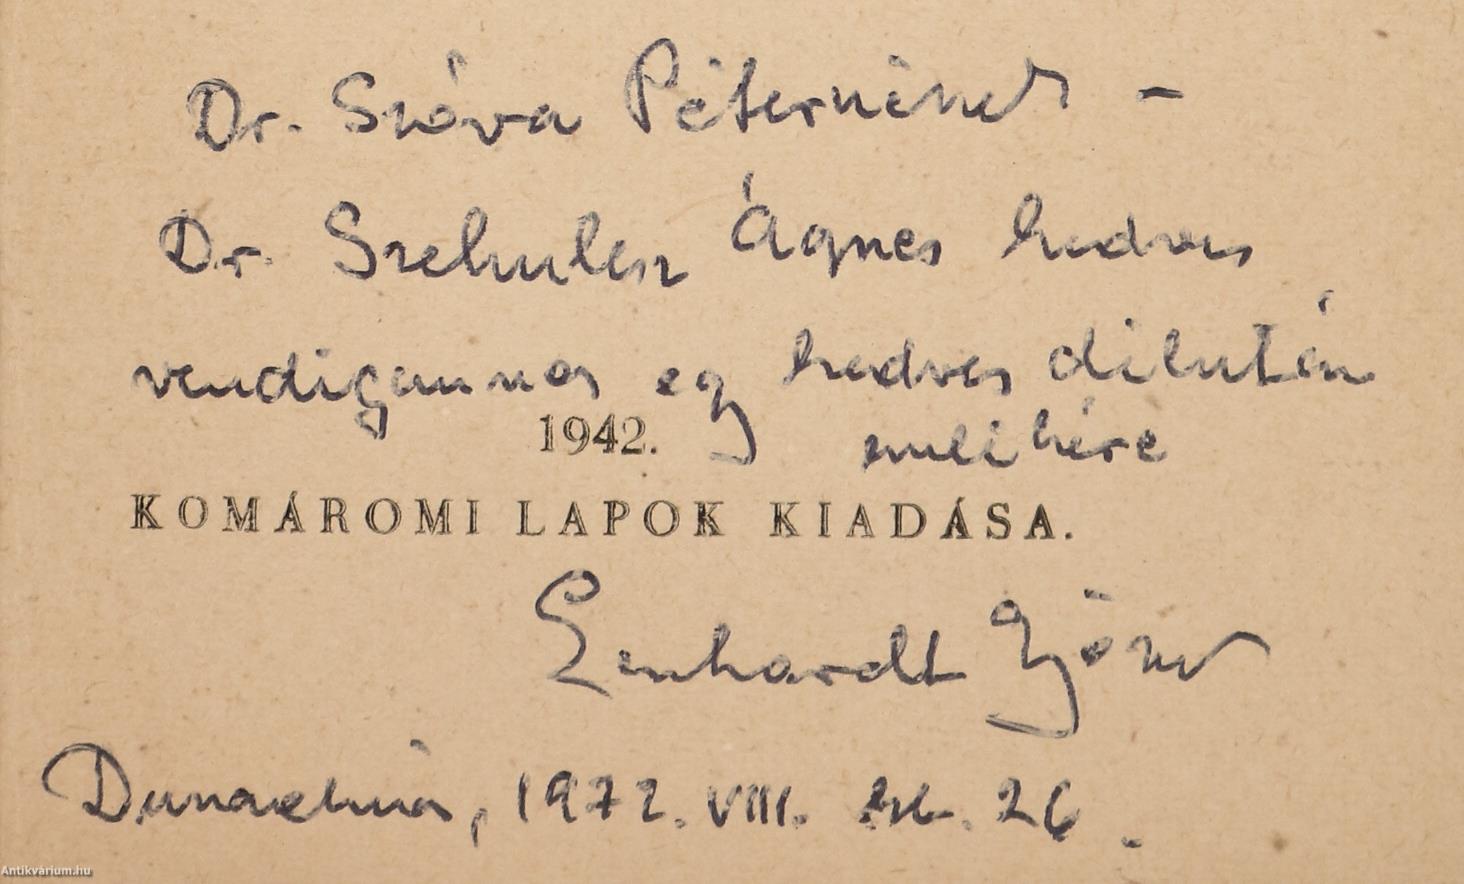 Dr. Szóva Péternének –
Dr. Ágnes kedves
vendégünnek egy kedves délután
1942.
emlékére
KOMÁROMI LAPOK KIADÁSA.
Lenhardt György
1972. VIII. 26.
Antikvárium.hu